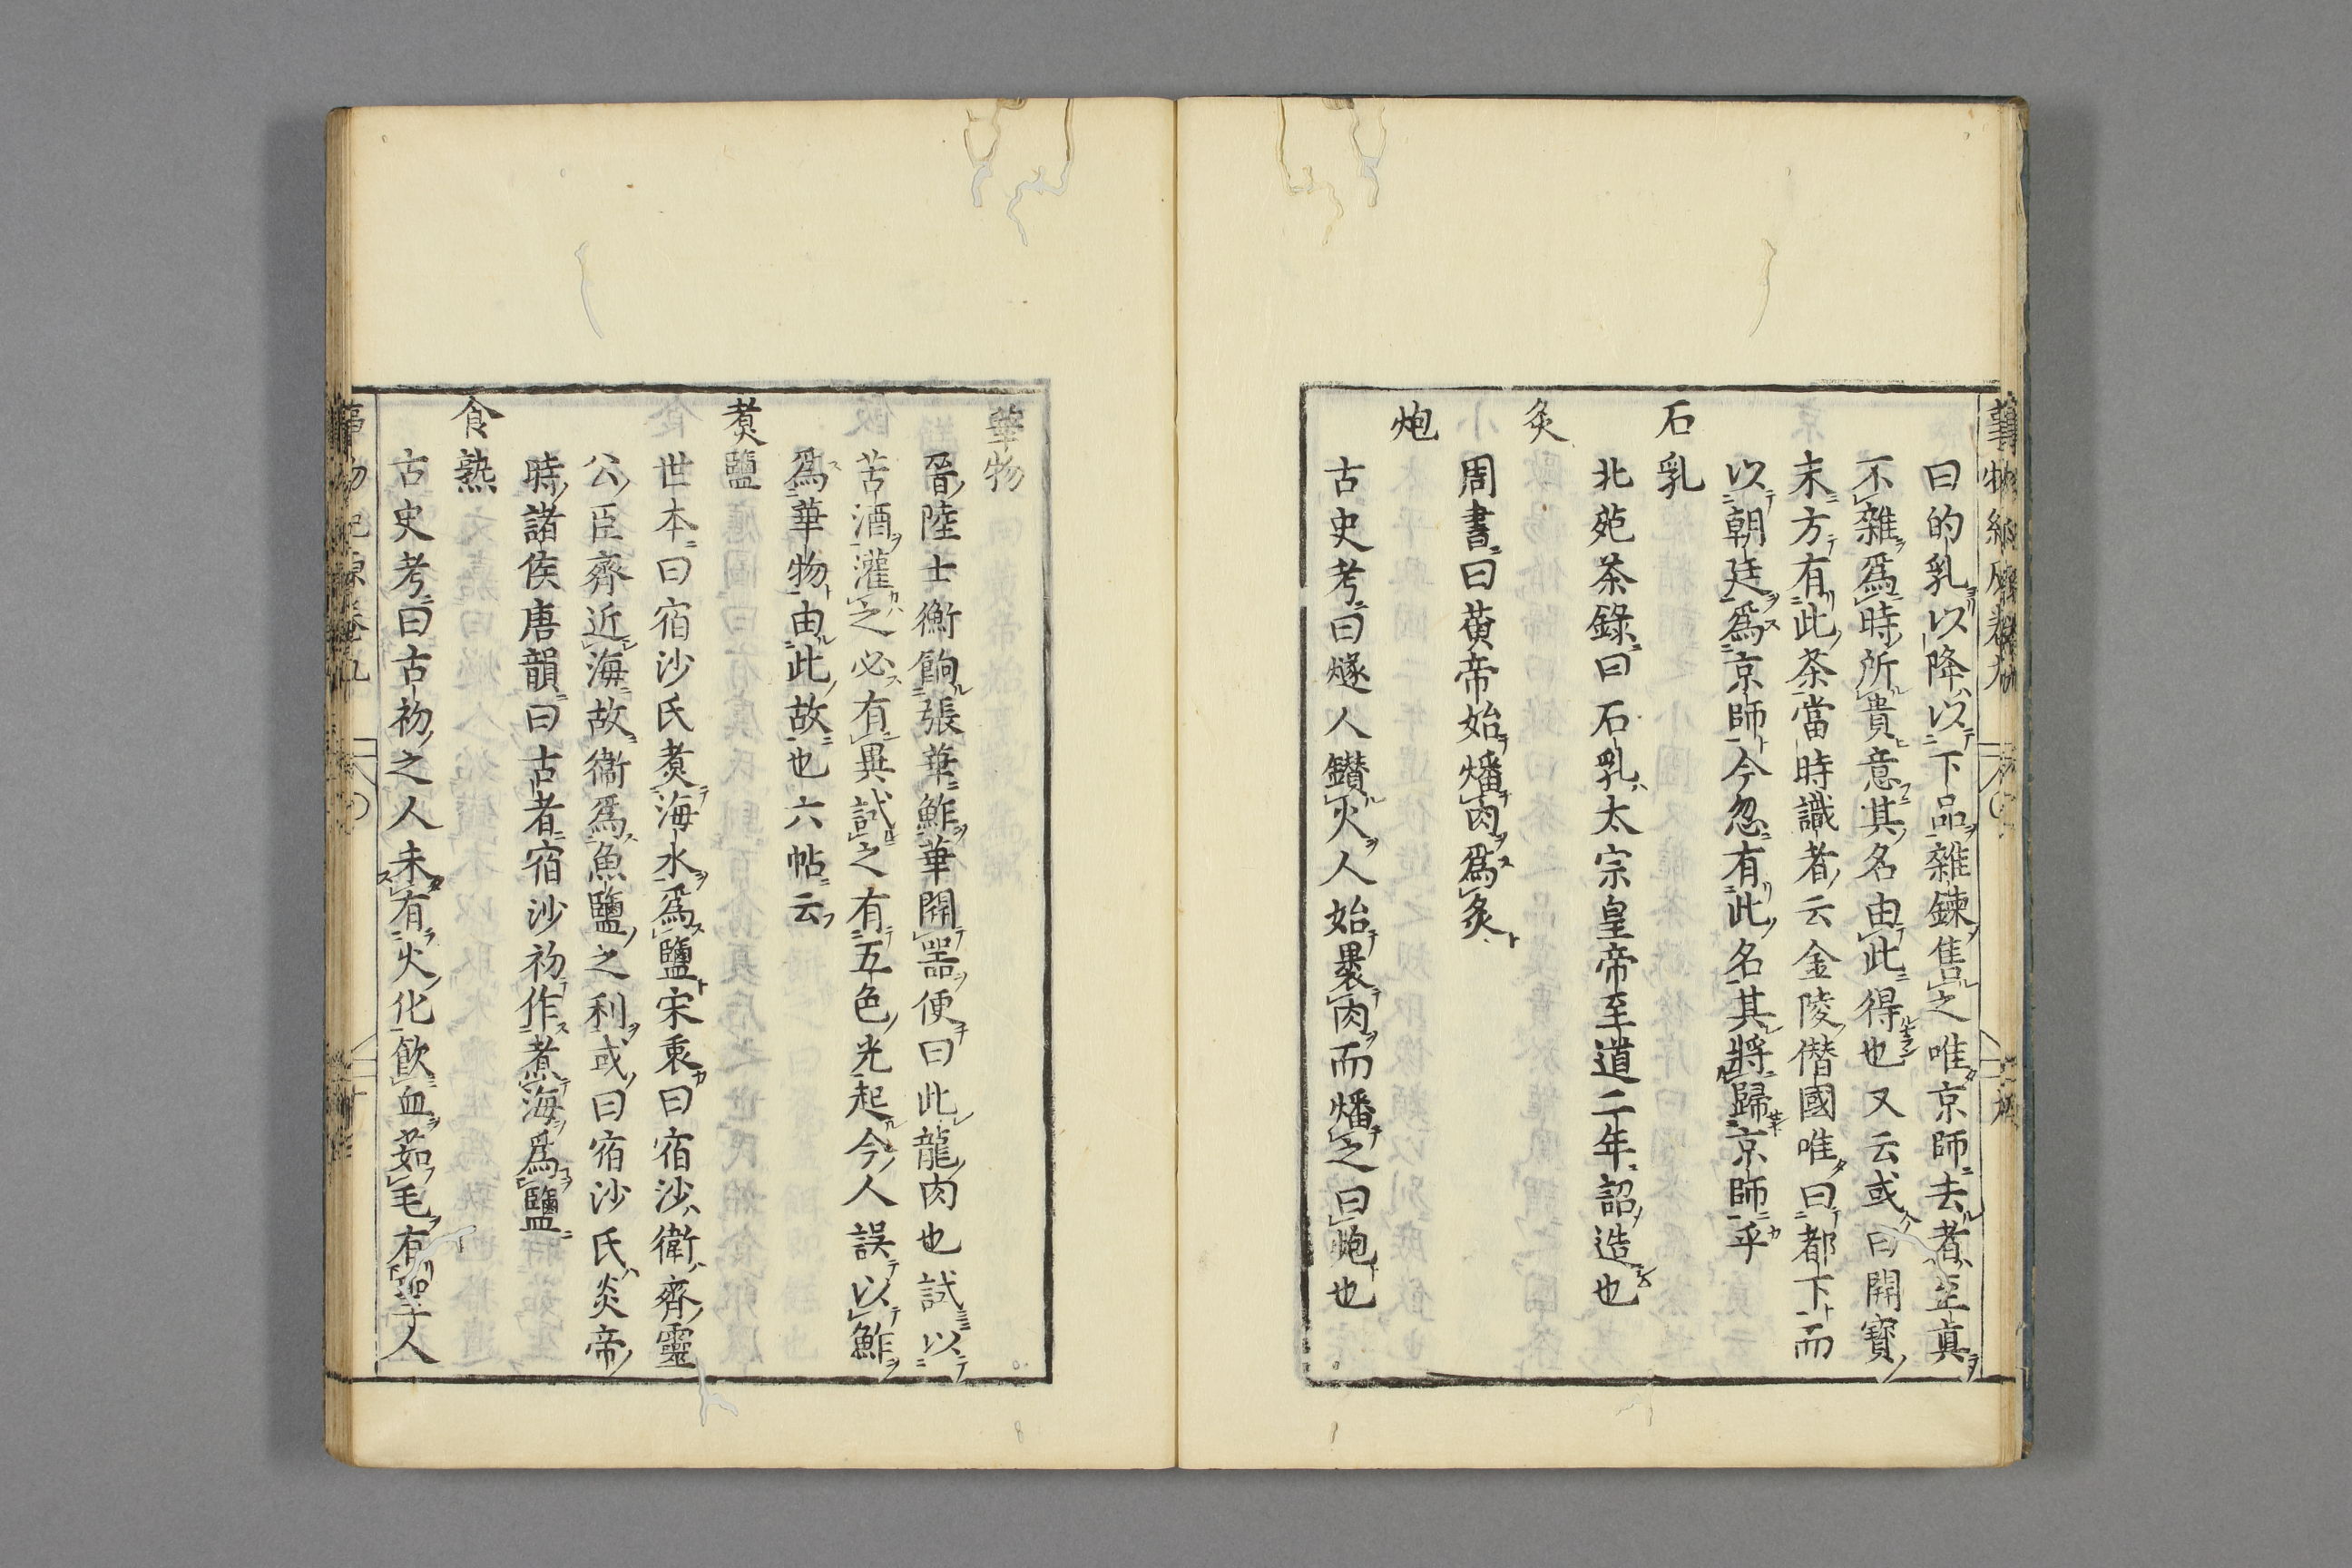 曰的乳以降以下品雜錬售之唯京師去者至真
不雜爲時所貴意其名由此得也又云或曰開寶
末方有此茶當時識者云金陵僭國唯曰都下而
以朝廷爲京師今忽有此名其將歸京師乎
石乳
北苑茶錄曰石乳太宗皇帝至道二年詔造也
炙
周書曰黄帝始燔肉爲炙
炮
古史考曰燧人鑚火人始裹肉而燔之曰炮也
華物
晉陸士衡餉張華鮓華開噐便曰此龍肉也試以
苦酒灌之必有異試之有五色光起今人誤以鮓
爲華物由此故也六帖云
煑鹽
世本曰宿沙氏煑海水爲鹽宋衷曰宿沙衛齊靈
公臣齊近海故衞爲魚鹽之利或曰宿沙氏炎帝
時諸侯唐韻曰古者宿沙初作煮海爲鹽
食熟
古史考曰古初之人未有火化飲血茹毛有聖人